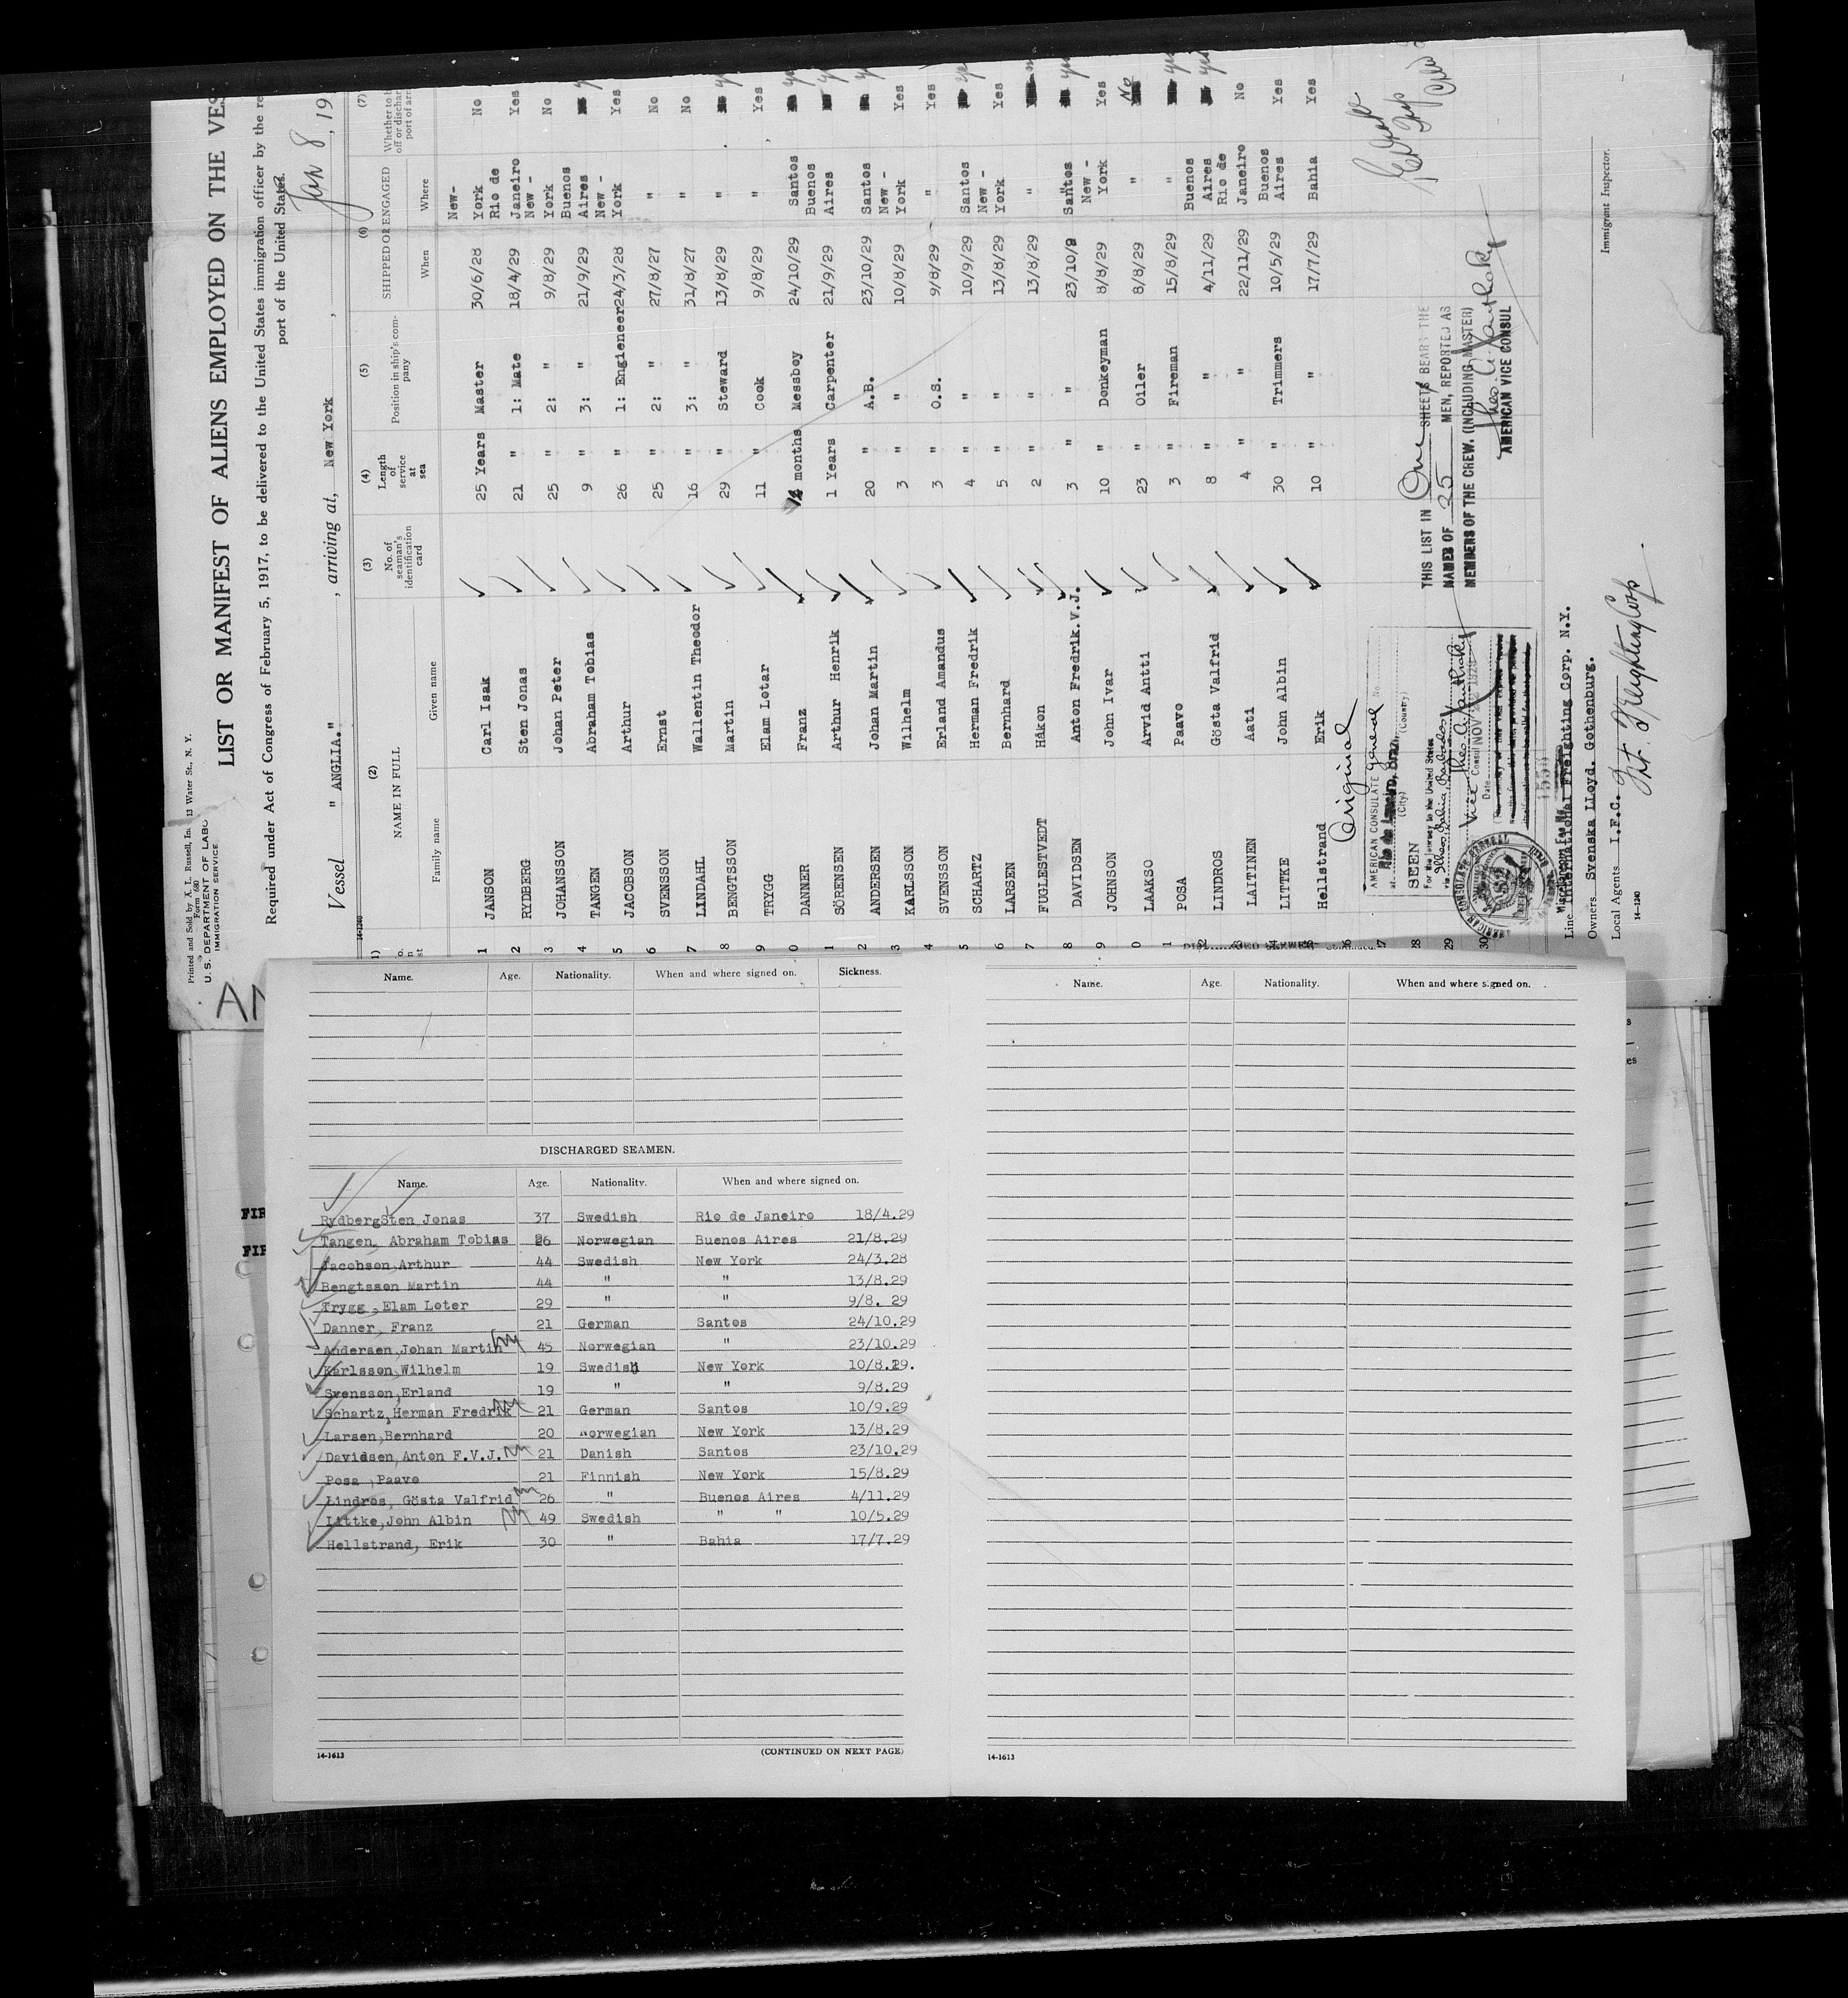 Printed and Sold by A. L. Russell, Inc. 13 Water St., N. Y.
Form 680
U. S. DEPARTMENT OF LABO
IMMIGRATION SERVICE
LIST OR MANIFEST OF ALIENS EMPLOYED ON THE VES
Required under Act of Congress of February 5, 1917, to be delivered to the United States immigration officer by the re
port of the United States.
Vessel " ANGLIA." , arriving at, New York , Jan 8 , 19
14-1240
(2) (3) (4) (5) (6) (7)
NAME IN FULL No. of seaman's identification card Length of service at sea Position in ship's company SHIPPED OR ENGAGED Whether to b off or dischar port of arr
Family name Given name When Where
1 JANSON Carl Isak 25 Years Master 30/6/28 New-York No
2 RYDBERG Sten Jonas 21 " 1: Mate 18/4/29 Rio de Janeiro Yes
3 JOHANSSON Johan Peter 25 " 2: " 9/8/29 New - York No
4 TANGEN Abraham Tobias 9 " 3: " 21/9/29 Buenos Aires
5 JACOBSON Arthur 26 " 1: Engieneer 24/3/28 New - York Yes
6 SVENSSON Ernst 25 " 2: " 27/8/27 " No
7 LINDAHL Wallentin Theodor 16 " 3: " 31/8/27 " No
8 BENGTSSON Martin 29 " Steward 13/8/29 "
9 TRYGG Elam Lotar 11 " Cook 9/8/29 " Yes
0 DANNER Franz months Messboy 24/10/29 Santos
1 SÖRENSEN Arthur Henrik 1 Years Carpenter 21/9/29 Buenos Aires
2 ANDERSEN Johan Martin 20 " A.B. 23/10/29 Santos
3 KARLSSON Wilhelm 3 " " 10/8/29 New - York Yes
4 SVENSSON Erland Amandus 3 " O.S. 9/8/29 " Yes
5 SCHARTZ Herman Fredrik 4 " " 10/9/29 Santos
6 LARSEN Bernhard 5 " " 13/8/29 New - York Yes
7 FUGLESTVEDT Håkon 2 " " 13/8/29 "
8 DAVIDSEN Anton Fredrik.V.J. 3 " " 23/10/9 Santos
9 JOHNSON John Ivar 10 " Donkeyman 8/8/29 New - York Yes
0 LAAKSO Arvid Antti 23 " Oiler 8/8/29 " No
1 POSA Paavo 3 " Fireman 15/8/29 "
LINDROS Gösta Valfrid 8 " " 4/11/29 Buenos Aires yes
LAITINEN Aati 4 " " 22/11/29 Rio de Janeiro No
LITTKE John Albin 30 " Trimmers 10/5/29 Buenos Aires Yes
Hellstrand Erik 10 " " 17/7/29 Bahia Yes
Original
AMERICAN CONSULATE General
at (City) (Country)
SEEN
For the journey to the United States
THIS LIST IN One SHEETS BEARS THE
NAMES OF 25 MEN, REPORTED AS
MEMBERS OF THE CREW. (INCLUDING MASTER)
AMERICAN VICE CONSUL
Line International Freighting Corp. N.Y.
Owners Svenska LLoyd. Gothenburg.
Local Agents I.F.C. Int. Freighting Corp
Immigrant Inspector.
14-1240
Name. Age. Nationality. When and where signed on. Sickness.
DISCHARGED SEAMEN.
Name. Age. Nationality. When and where signed on.
RydbergSten Jonas 37 Swedish Rio de Janeiro 18/4.29
Tangen, Abraham Tobias 26 Norwegian Buenos Aires 21/8.29
Jacobson,Arthur 44 Swedish New York 24/3.28
Bengtsson Martin 44 " " 13/8.29
Trygg ,Elam Loter 29 " " 9/8. 29
Danner, Franz 21 German Santos 24/10.29
Andersen,Johan Martin 45 Norwegian " 23/10.29
Karlsson,Wilhelm 19 Swedish New York 10/8.29.
Svensson,Erland 19 " " 9/8.29
Schartz,Herman Fredrik 21 German Santos 10/9.29
Larsen,Bernhard 20 Norwegian New York 13/8.29
Davidsen,Anton F.V.J. 21 Danish Santos 23/10.29
Posa ,Paavo 21 Finnish New York 15/8.29
Lindros, Gösta Valfrid 26 " Buenos Aires 4/11.29
Littke,John Albin 49 Swedish " " 10/5.29
Hellstrand, Erik 30 " Bahia 17/7.29
14-1613 (CONTINUED ON NEXT PAGE)
Name. Age. Nationality. When and where signed on.
14-1613